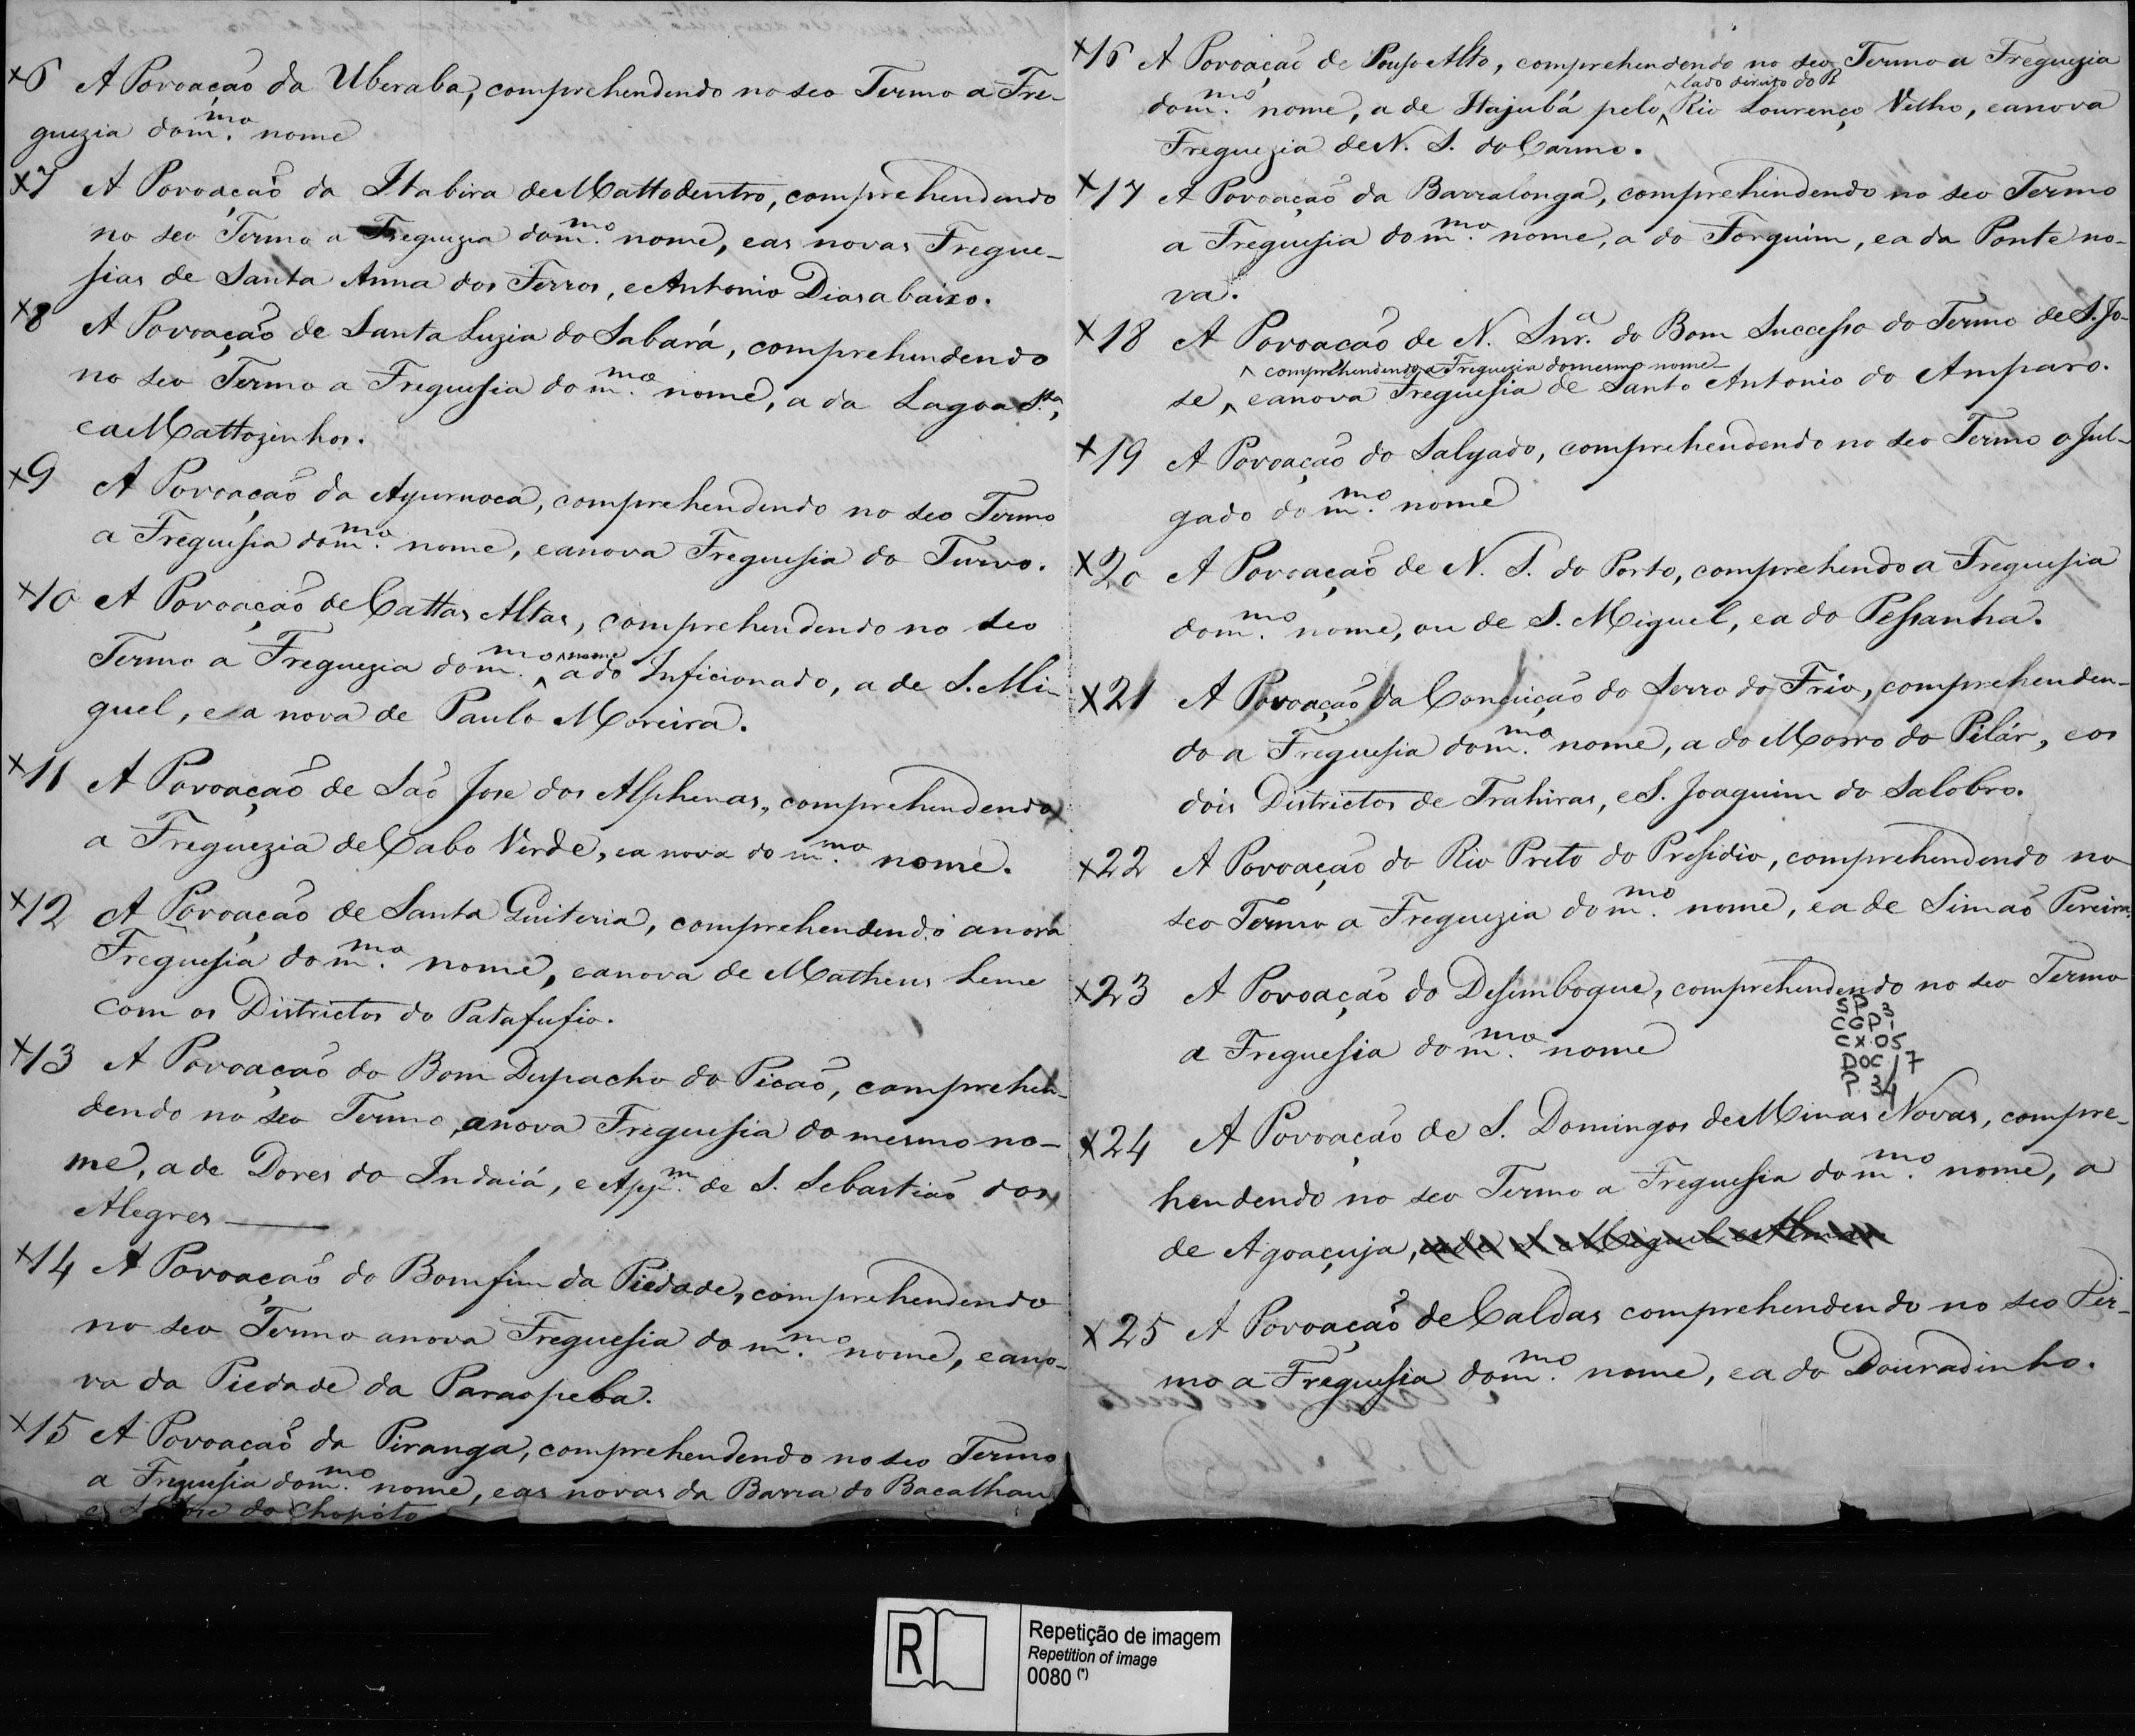 x6 A Povoação da Uberaba, comprehendendo no seo Termo a Fre-
guezia do m.mo nome
x7 A Povoação da Itabira de Mattodentro, comprehendendo
no seo Termo a Freguezia do m.mo nome, e as novas Fregue-
sias de Santa Anna dos Ferros, e Antonio Dias abaixo.
x8 A Povoação de Santa Luzia do Sabará, comprehendendo
no seo Termo a Freguesia do m.mo nome, a da Lagoa S.ta,
e a Mattozinhos.
x9 A Povoação da Ayuruoca, comprehendendo no seo Termo
a Freguesia do m.mo nome, e a nova Freguesia do Turvo.
x10 A Povoação de Cattas Altas, comprehendendo no seo
Termo a Freguezia do m.mo nome a do Inficionado, a de S. Mi-
guel, e a nova de Paulo Moreira.
x11 A Povoação de São Jose dos Alphenas, comprehendendo
a Freguezia de Cabo Verde, e a nova do m.mo nome.
x12 A Povoação de Santa Quiteria, comprehendendo a nova
Freguesia do m.mo nome, e a nova de Matheus Leme
com os Districtos do Patafufio.
x13 A Povoação do Bom Despacho do Picão, comprehen-
dendo no seo Termo, a nova Freguesia do mesmo no-
me, a de Dores do Indaiá, e App.m de S. Sebastião dos
Alegres
x14 A Povoação do Bomfim da Piedade, comprehendendo
no seo Termo a nova Freguesia do m.mo nome, e a no-
va da Piedade da Paraopeba.
x15 A Povoação da Piranga, comprehendendo no seo Termo
a Freguesia do m.mo nome, e as novas da Barra do Bacalhau
e S. Jose do Chopóto
x16 A Povoação de Pouso Alto, comprehendendo no seo Termo a Freguezia
lado direito do R
do m.mo nome, a de Itajubá pelo Rio Lourenço Velho, e a nova
Freguezia de N. S. do Carmo.
x17 A Povoação da Barralonga, comprehendendo no seo Termo
a Freguesia do m.mo nome, a do Forquim, e a da Ponte no-
va.
x18 A Povoação de N. Snr.a do Bom Successo do Termo de S. Jo-
comprehendendo a Freguezia do mesmo nome
se, e a nova Freguesia de Santo Antonio do Amparo.
x19 A Povoação do Salgado, comprehendendo no seo Termo o Jul-
gado do m.mo nome
x20 A Povoação de N. S. do Porto, comprehendo a Freguesia
do m.mo nome, ou de S. Miguel, e a do Pessanha.
x21 A Povoação da Conceição do Serro do Frio, comprehenden-
do a Freguesia do m.mo nome, a do Morro do Pilár, e os
dois Districtos de Trahiras, e S. Joaquim do Salobro.
x22 A Povoação do Rio Preto do Presidio, comprehendendo no
seo Termo a Freguezia do m.mo nome, e a de Simão Pereira.
x23 A Povoação do Desemboque, comprehendendo no seo Termo
a Freguesia do m.mo nome
SP 3
CGP-1
CX.05
DOC/7
P. 34
x24 A Povoação de S. Domingos de Minas Novas, compre-
hendendo no seo Termo a Freguesia do m.mo nome, a
de Agoaçuja, e a de S. Miguel
x25 A Povoação de Caldas comprehendendo no seo Ter-
mo a Freguesia do m.mo nome, e a do Douradinho.
R
Repetição de imagem
Repetition of image
0080 (*)